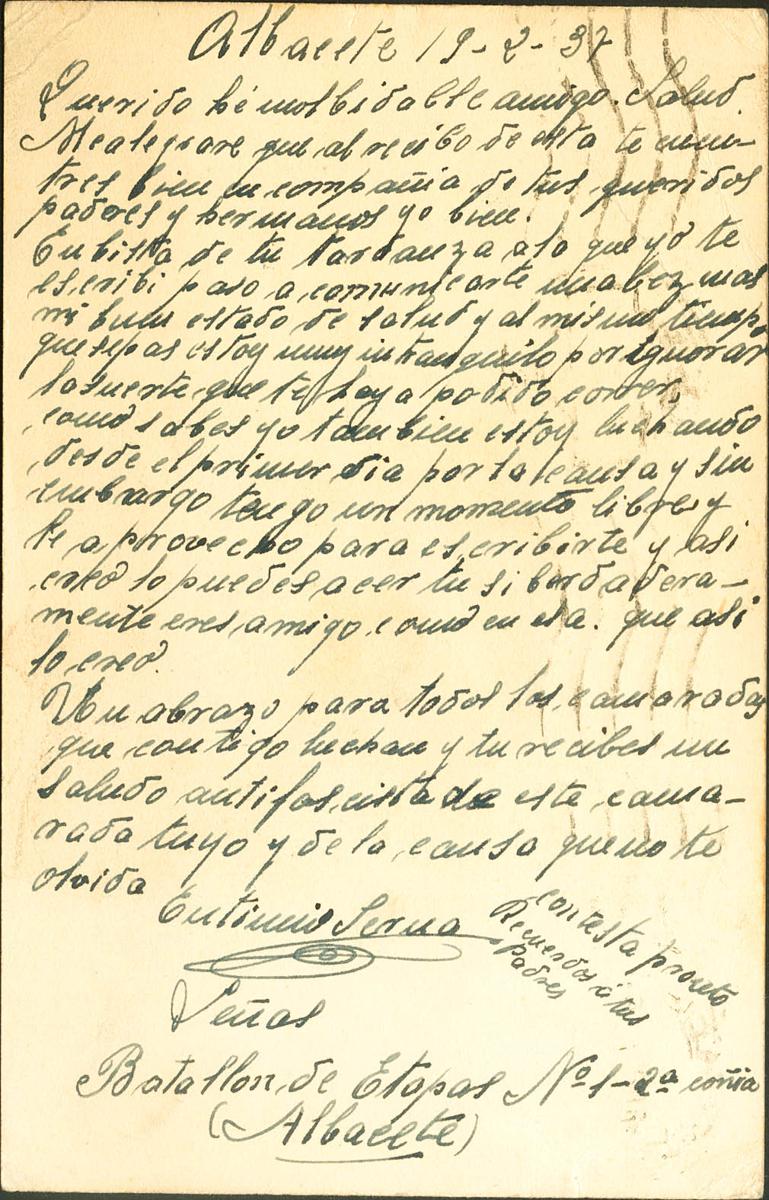 Albacete 19-2-37
Querido hé inolbidable amigo. Salud.
Mealegrare que al recibo de esta te encuen-
tres bien en compañia de tus queridos
padres y hermanos yo bien.
En bista de tu tardanza a la que yo te
escribi paso a comunicarte unabez mas
mi buen estado de salud y al mismo tiempo
quesepas estoy muy intranquilo por ignorar
la suerte que te haya podido correr,
como sabes yo tambien estoy luchando
desde el primer dia por la causa y sin
embargo tengo un momento libre y
le aprovecho para escribirte y asi
creo lo puedes acer tu si berdadera-
mente eres amigo como en esa. que asi
lo creo.
Un abrazo para todos los camaradas
que contigo luchan y tu recibes un
saludo antifascista de este cama-
rada tuyo y de la causa que no te
olvida
Eutimio Serna
contesta pronto
Recuerdos á tus
Padres
Señas
Batallon de Etapas Nº 1-2ª coñia
(Albacete)